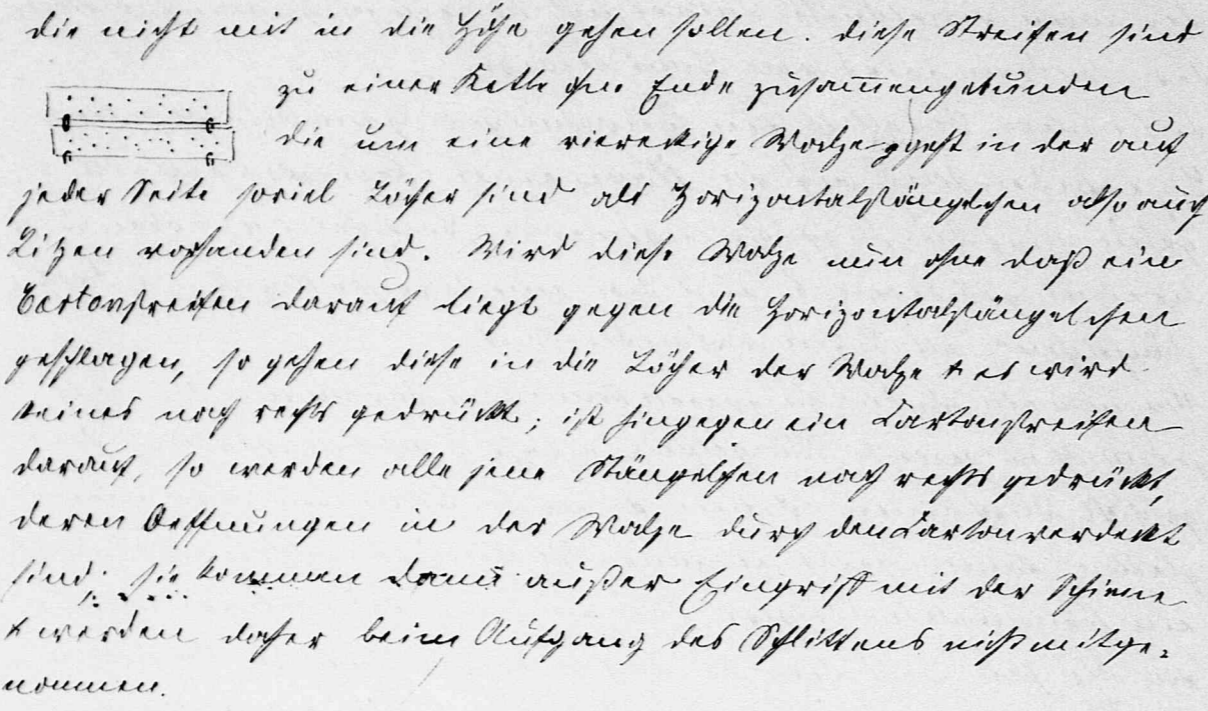 die nicht mit in die Höhe gehen sollen. diese Streifen sind
zu einer Kette ohne Ende zusam̅engebunden
die um eine viereckige Walze geht in der auf
jeder Seite soviel Löcher sind als Horizontalstängelchen also auch
Litzen vorhanden sind. Wird diese Walze nun ohne daß ein
Cartonstreifen darauf liegt gegen die Horizontalstängelchen
geschlagen, so gehen diese in die Löcher der Walze & es wird
keines nach rechts gedrückt; ist hingegen ein Cartonstreifen
darauf, so werden alle jene Stängelchen nach rechts gedrückt,
deren Oeffnungen in der Walze durch den Carton verdeckt
sind; sie kommen dann außer Eingriff mit der Schiene
& werden daher beim Aufgang des Schlittens nicht mitge-
nommen.